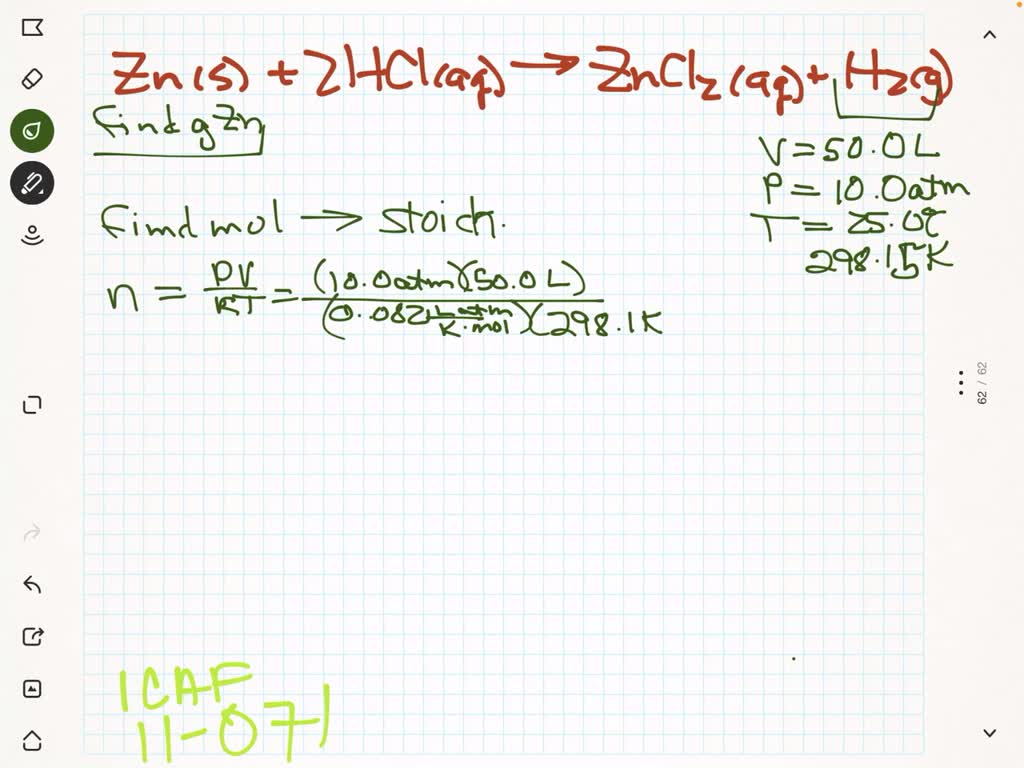 Zn(s) + 2HCl(aq) → ZnCl₂(aq) + H₂(g)
find g Zn
V = 50.0 L
P = 10.0 atm
T = 25.0 °C
298.15 K
find mol → stoich.
n = PV/RT = (10.0 atm)(50.0 L)/(0.0821 L·atm/K·mol)(298.1K
62 / 62
ICAF
11-071